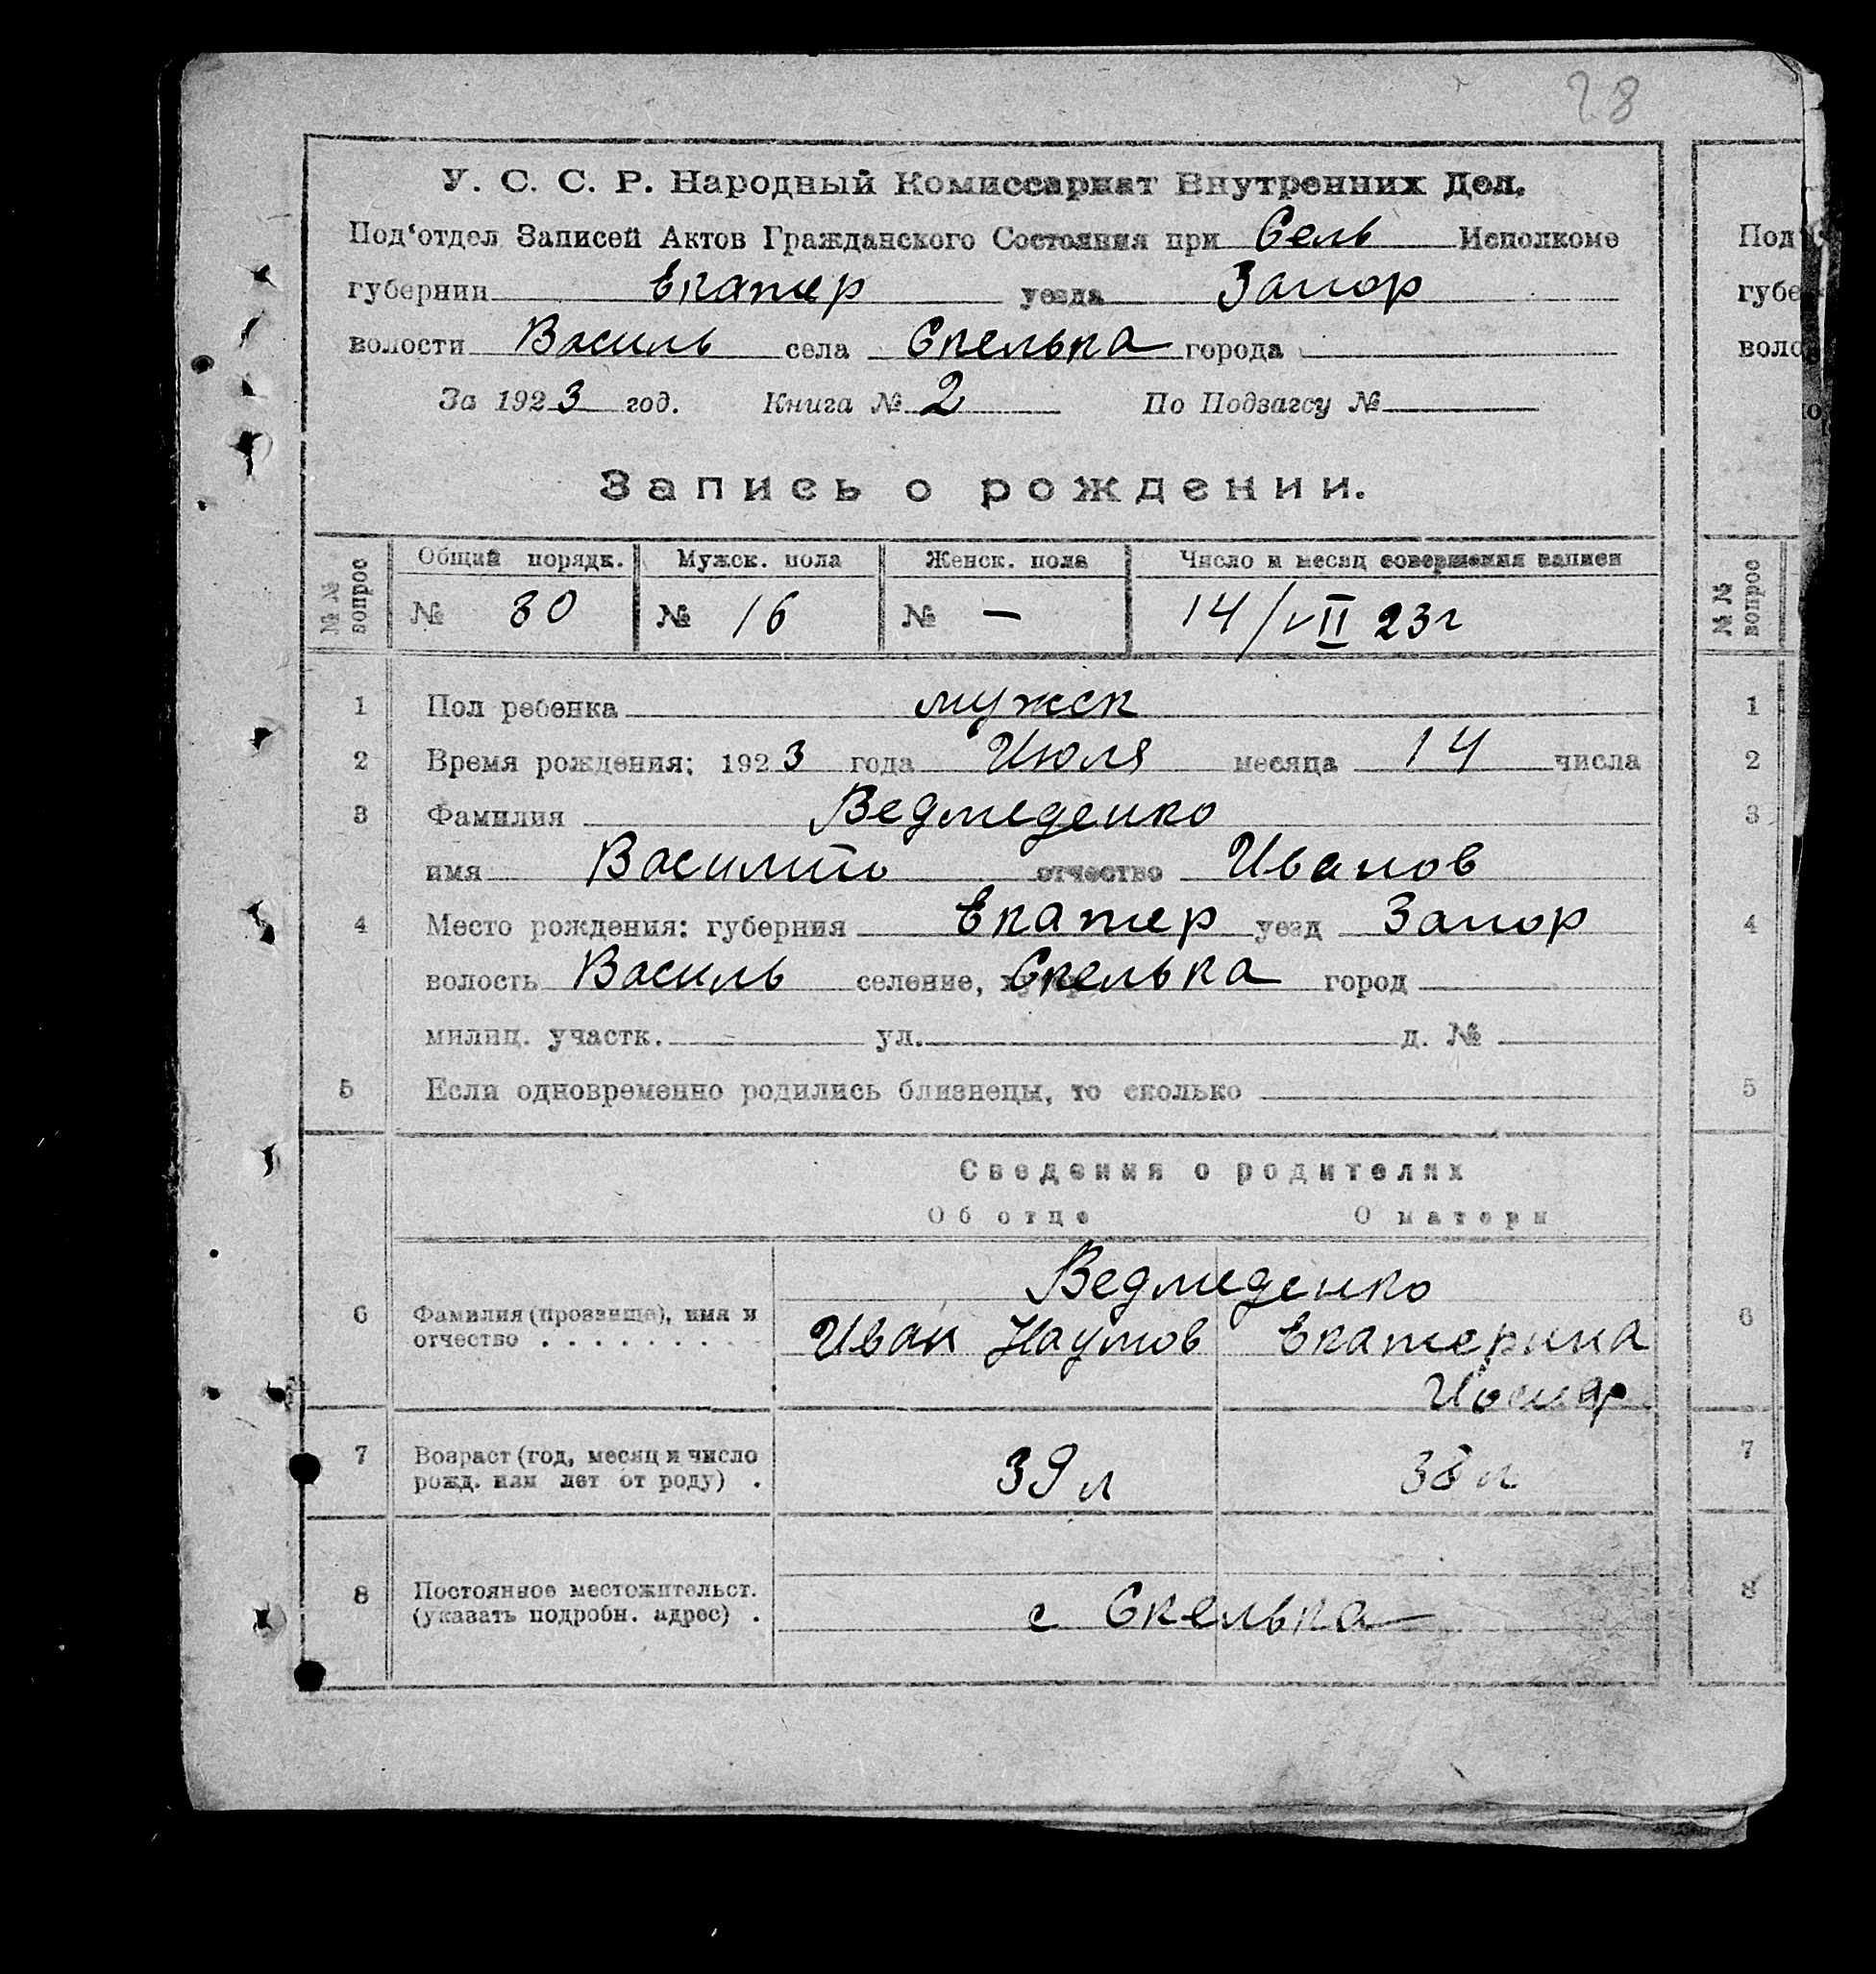 28
У. С. С. Р. Народный Комиссариат Внутренних Дел.
Под‘отдел Записей Актов Гражданского Состояния при Сель Исполкоме
губернии Екатер уезда Запор
волости Василь села Скелька города
За 1923 год. Книга № 2 По Подзагсу №
Запись о рождении.
№ № вопрос Общий порядк. Мужск. пола Женск. пола Число и месяц совершения записи
№ 30 № 16 № — 14/VII 23г
1 Пол ребенка мужск
2 Время рождения: 1923 года Июля месяца 14 числа
3 Фамилия Ведмеденко
имя отчество Иванов
4 Место рождения: губерния Екатер уезд Запор
волость Василь селение, Скелька город
милиц. участк. ул. д. №
5 Если одновременно родились близнецы, то сколько
Сведения о родителях
Об отце О матери
Ведмеденко
6 Фамилия (прозвище), имя и
отчество . . . . . . . . Иван Наумов Екатерина
7 Возраст (год, месяц и число
рожд. или лет от роду) . 39 л 38 л
8 Постоянное местожительст.
(указать подробн. адрес) . с Скелька
Под
губе
воло
№ № вопрос
1
2
3
4
5
6
7
8